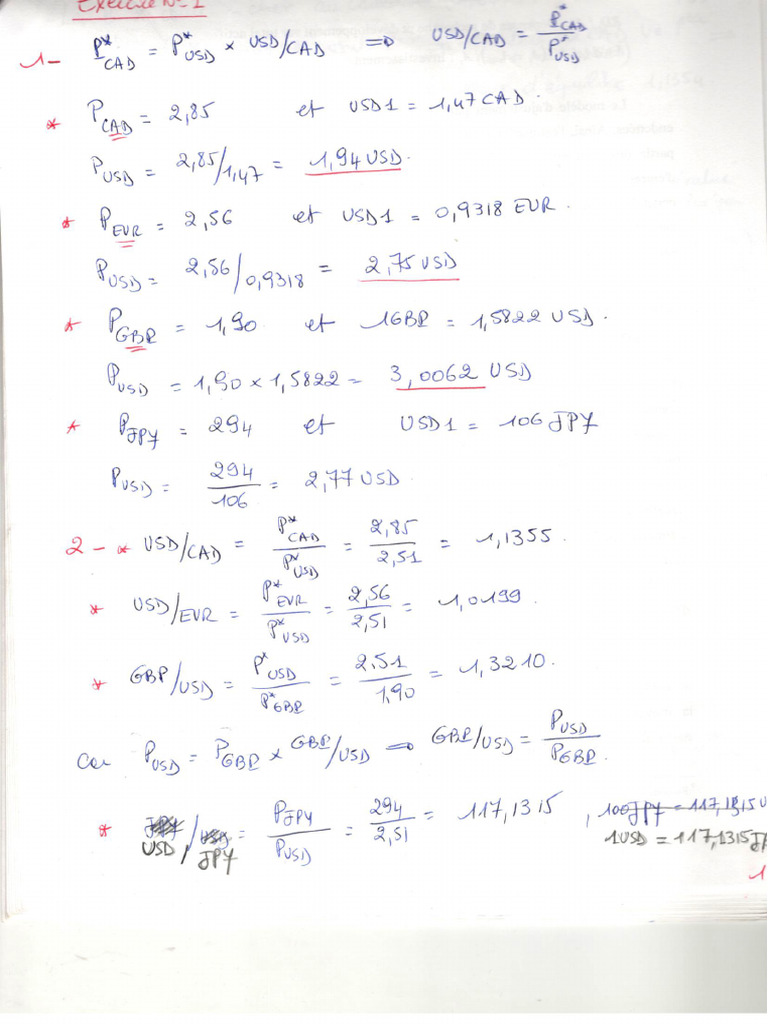 Exercice N° 1
1- P*CAD = P*USD × USD/CAD => USD/CAD = P*CAD / P*USD
* PCAD = 2,85 et USD1 = 1,47 CAD.
PUSD = 2,85/1,47 = 1,94 USD.
* PEUR = 2,56 et USD1 = 0,9318 EUR.
PUSD = 2,56/0,9318 = 2,75 USD
* PGBP = 1,90 et 1GBP = 1,5822 USD.
PUSD = 1,90 × 1,5822 = 3,0062 USD
* PJPY = 294 et USD1 = 106 JPY
PUSD = 294/106 = 2,77 USD.
2 - * USD/CAD = P*CAD / P*USD = 2,85/2,51 = 1,1355.
* USD/EUR = P*EUR / P*USD = 2,56/2,51 = 1,0199.
* GBP/USD = P*USD / P*GBP = 2.51/1,90 = 1,3210.
Car PUSD = PGBP × GBP/USD => GBP/USD = PUSD / PGBP.
* USD/JPY = PJPY / PUSD = 294/2,51 = 117,1315, 100JPY = 117,1315 U
1USD = 117,1315 JP
1